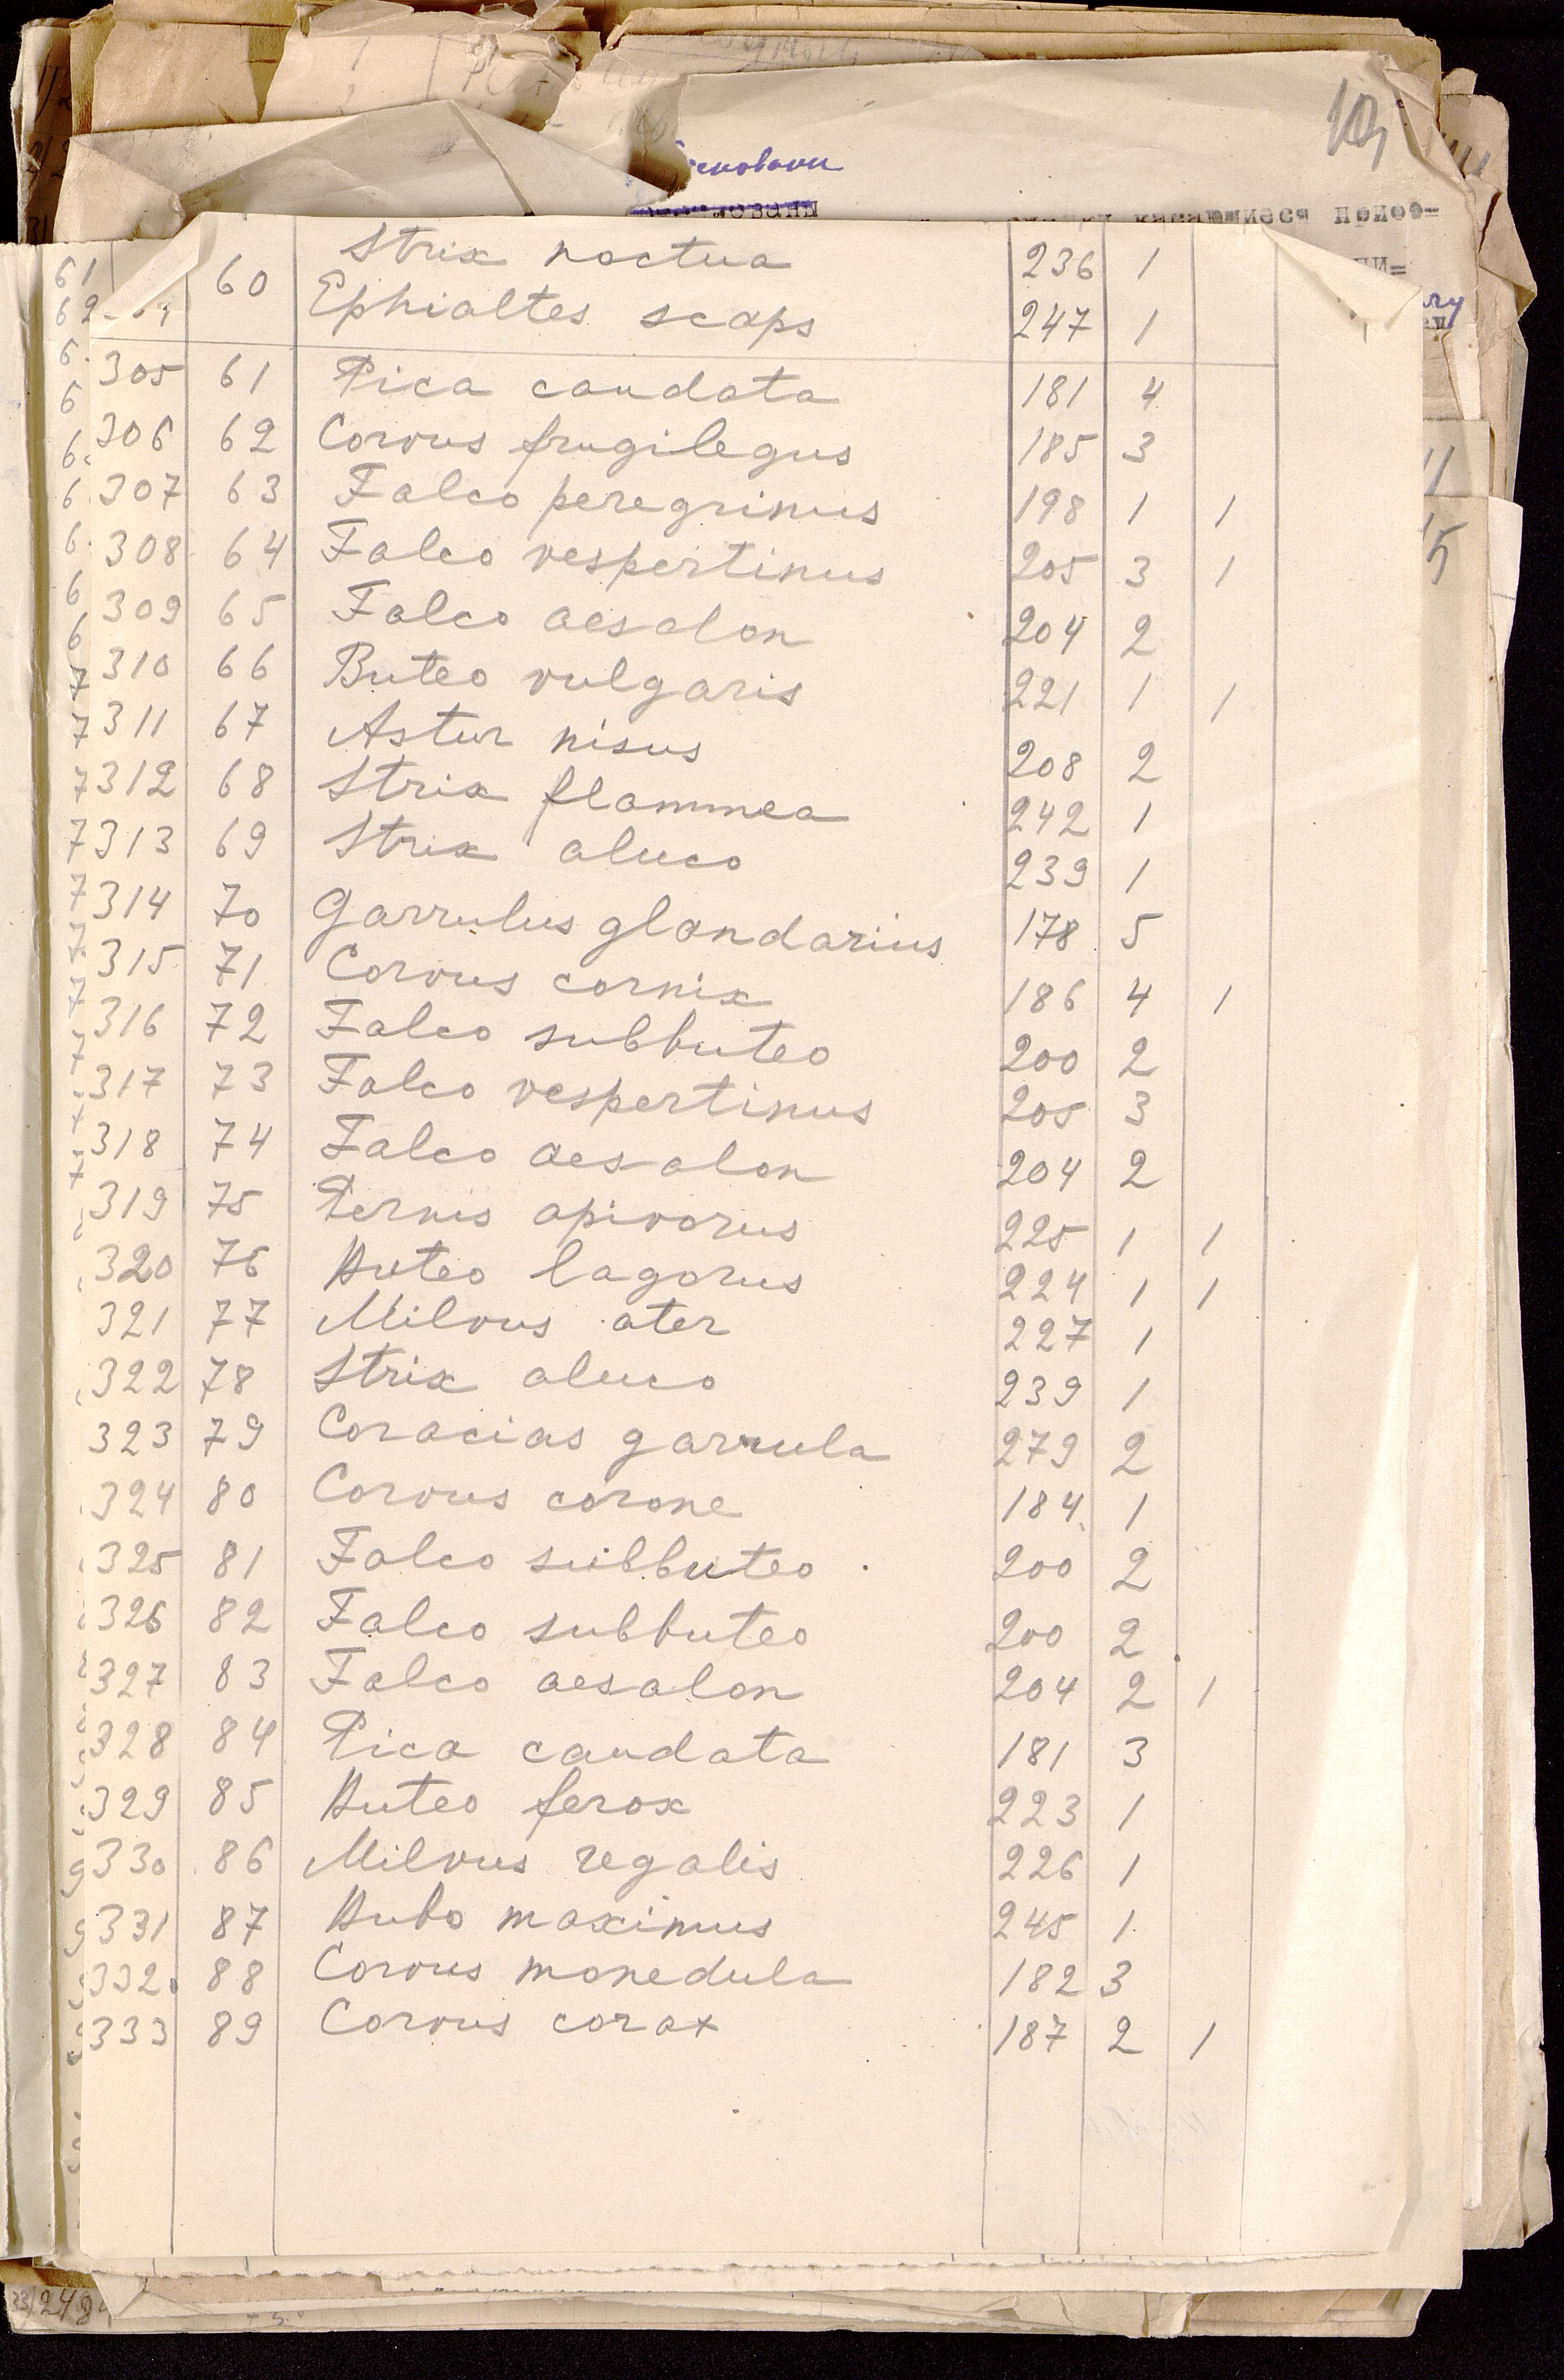 10,
касающиеся приоб=
Strix noctua 236 1
60 Ephialtes scops 247 1
305 61 Pica caudata 181 4
306 62 Corvus frugilegus 185 3
307 63 Falco peregrinus 198 1 1
308 64 Falco vespertinus 205 3 1
309 65 Falco aesalon 204 2
310 66 Buteo vulgaris 221 1 1
311 67 Astur nisus 208 2
312 68 Strix flammea 242 1
313 69 Strix aluco 239 1
314 70 Garrulus glandarius 178 5
315 71 Corvus cornix 186 4 1
316 72 Falco subbuteo 200 2
317 73 Falco vespertinus 205 3
318 74 Falco aesalon 204 2
319 75 Pernis apivorus 225 1 1
320 76 Buteo lagorus 224 1 1
321 77 Milvus ater 227 1
322 78 Strix aluco 239 1
323 79 Coracias garrula 279 2
324 80 Corvus corone 184 1
325 81 Falco subbuteo 200 2
326 82 Falco subbuteo 200 2
327 83 Falco aesalon 204 2 1
328 84 Pica caudata 181 3
329 85 Buteo ferox 223 1
330 86 Milvus regalis 226 1
331 87 Bubo maximus 245 1
332 88 Corvus monedula 182 3
333 89 Corvus corax 187 2 1